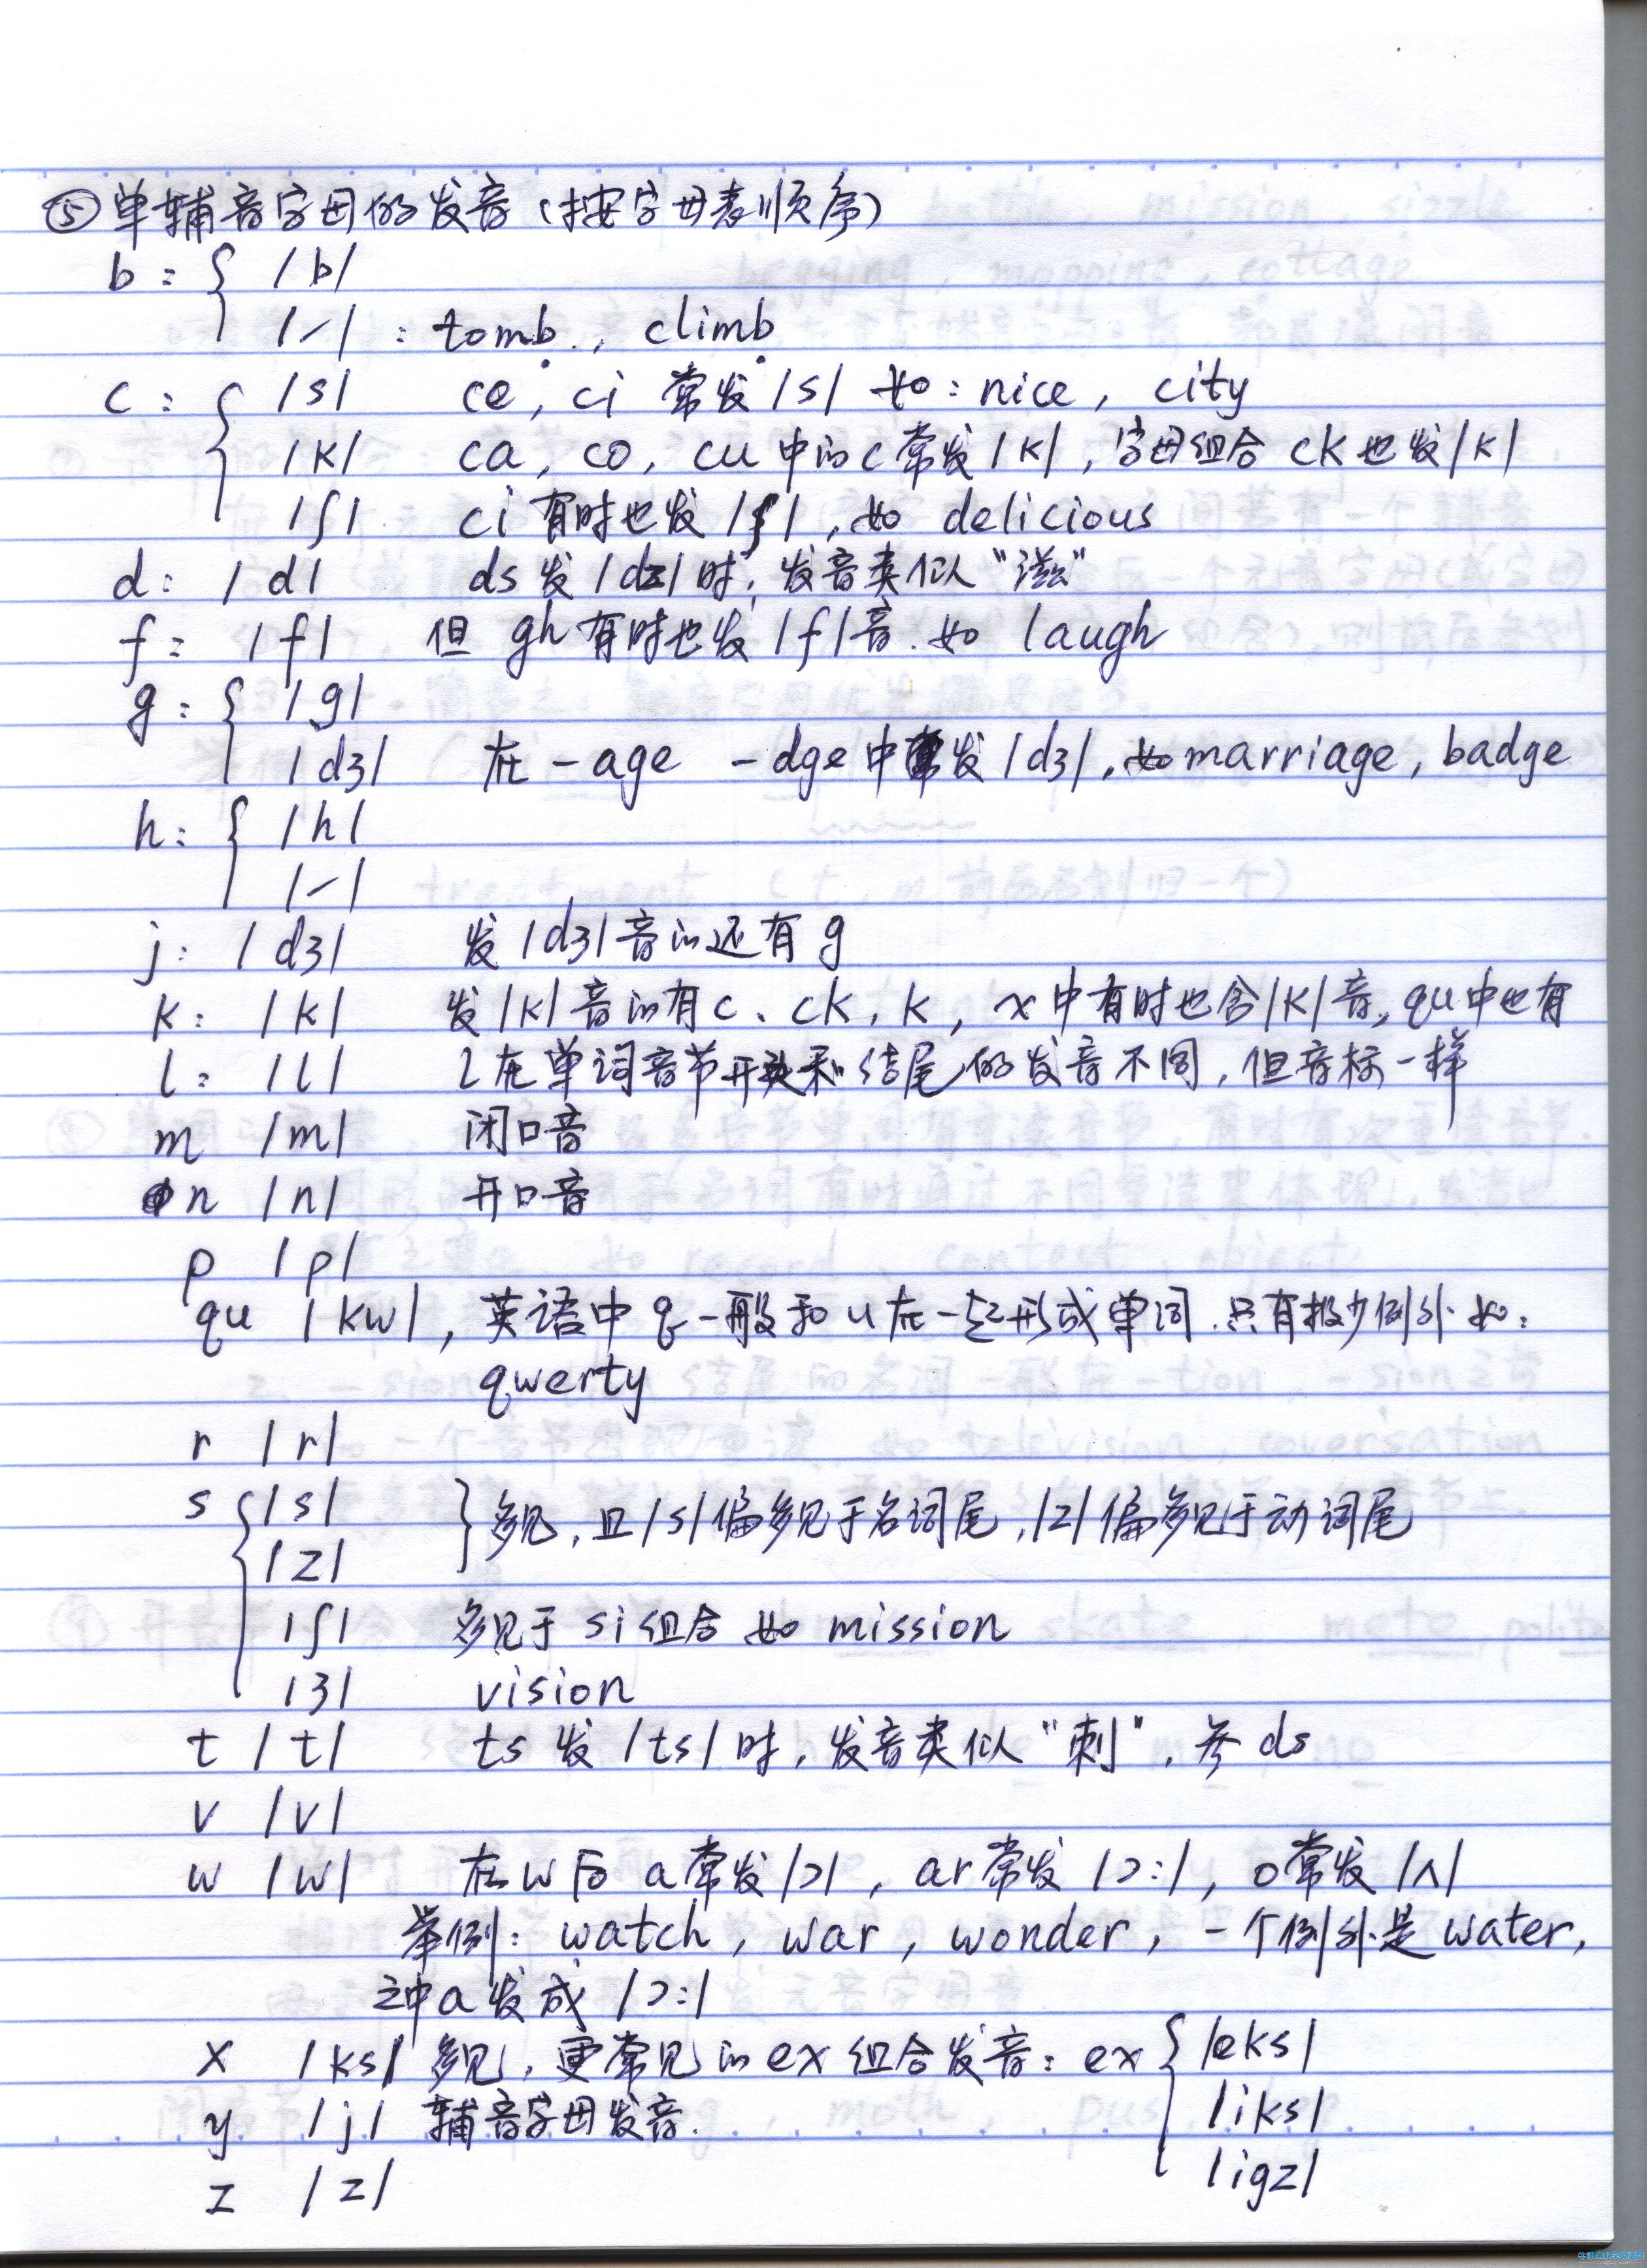 ⑤ 单辅音字母的发音（按字母表顺序）
b: { /b/
/-/ : tomb, climb
c: { /s/ ce, ci 常发/s/ 如: nice, city
/k/ ca, co, cu 中的c常发/k/, 字母组合 ck 也发/k/
/ʃ/ ci 有时也发/ʃ/, 如 delicious
d: /d/ ds 发/dz/时, 发音类似“滋”
f: /f/ 但 gh 有时也发/f/音. 如 laugh
g: { /g/
/dʒ/ 在 -age -dge 中常发/dʒ/, 如 marriage, badge
h: { /h/
/-/
j: /dʒ/ 发/dʒ/音的还有g
k: /k/ 发/k/音的有c、ck, k, x中有时也含/k/音, qu中也有
l: /l/ l在单词音节开头和结尾的发音不同, 但音标一样
m /m/ 闭口音
n /n/ 开口音
p /p/
qu /kw/, 英语中q一般和u在一起形成单词. 只有极少例外 如:
qwerty
r /r/
s { /s/
/z/ } 多见, 且/s/偏多见于名词尾, /z/偏多见于动词尾
/ʃ/ 多见于 si 组合 如 mission
/ʒ/ vision
t /t/ ts 发/ts/时, 发音类似“刺”, 参 ds
v /v/
w /w/ 在w后 a常发/ɔ/, ar常发/ɔ:/, o常发/ʌ/
举例: watch, war, wonder, 一个例外是 water,
之中a发成/ɔ:/
x /ks/ 多见, 更常见的ex组合发音: ex { /eks/
/iks/
y /j/ 辅音字母发音.
/igz/
z /z/